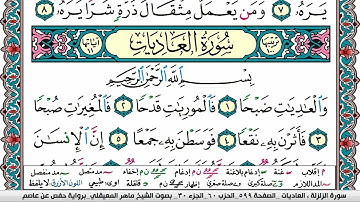 يَرَهُۥ ٧ وَمَن يَعْمَلْ مِثْقَالَ ذَرَّةٍ شَرًّا يَرَهُۥ ٨
سُورَةُ الْعَادِيَاتِ
بِسْمِ اللَّهِ الرَّحْمَٰنِ الرَّحِيمِ
وَالْعَٰدِيَٰتِ ضَبْحًا ١ فَالْمُورِيَٰتِ قَدْحًا ٢ فَالْمُغِيرَٰتِ صُبْحًا
٣ فَأَثَرْنَ بِهِۦ نَقْعًا ٤ فَوَسَطْنَ بِهِۦ جَمْعًا ٥ إِنَّ الْإِنسَٰنَ
سورة الزلزلة . العاديات . الصفحة ٥٩٩ . الجزء ٣٠ . بصوت الشيخ ماهر المعيقلي . برواية حفص عن عاصم